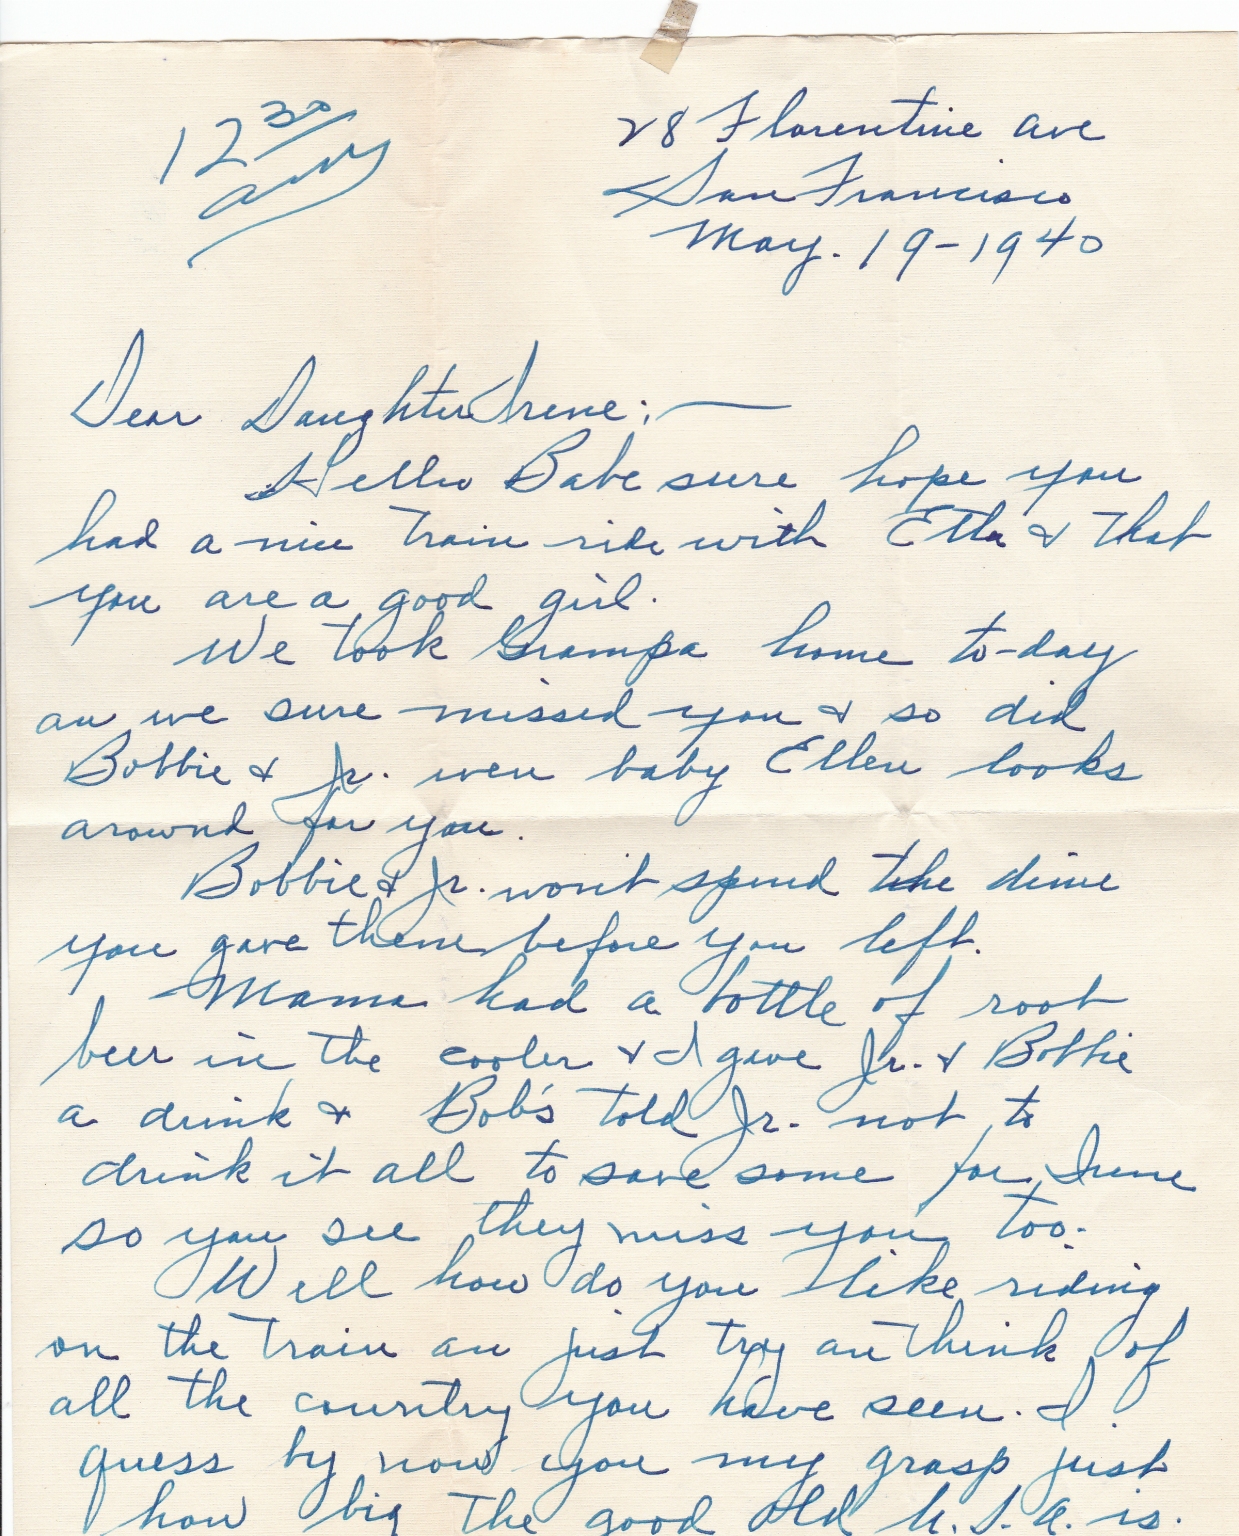 12 30
am
28 Florentine Ave
San Francisco
May. 19-1940
Dear Daughter Irene:—
Hello Babe sure hope you
had a nice train ride with Etta & that
you are a good girl.
We took Grampa home to-day
an we sure missed you & so did
Bobbie & Jr. even baby Ellen looks
around for you.
Bobbie & Jr. won't spend the dime
you gave them before you left.
Mama had a bottle of root
beer in the cooler & I gave Jr. & Bobbie
a drink & Bob's told Jr. not to
drink it all to save some for Irene
so you see they miss you too.
Well how do you like riding
on the train an just try an think of
all the country you have seen. I
guess by now you my grasp just
how big the good old U.S.A. is.